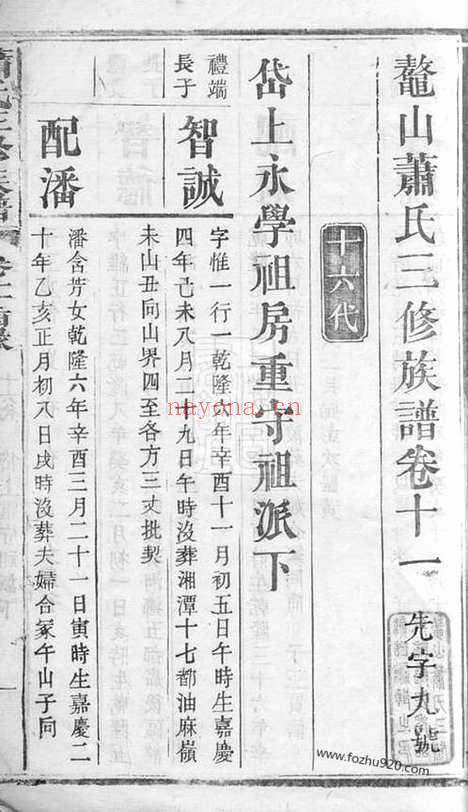 鼇山蕭氏三修族譜卷十一
先字九號
十六代
岱上永學祖房重守祖派下
禮端
長子
智誠
字惟一行一乾隆六年辛酉十一月初五日午時生嘉慶
四年己未八月二十九日午時沒葬湘潭十七都油麻嶺
未山丑向山界四至各方三丈批契
配潘
潘含芳女乾隆六年辛酉三月二十一日寅時生嘉慶二
十年乙亥正月初八日戌時沒葬夫婦合冢午山子向
nayona.cn
www.fozhu920.com